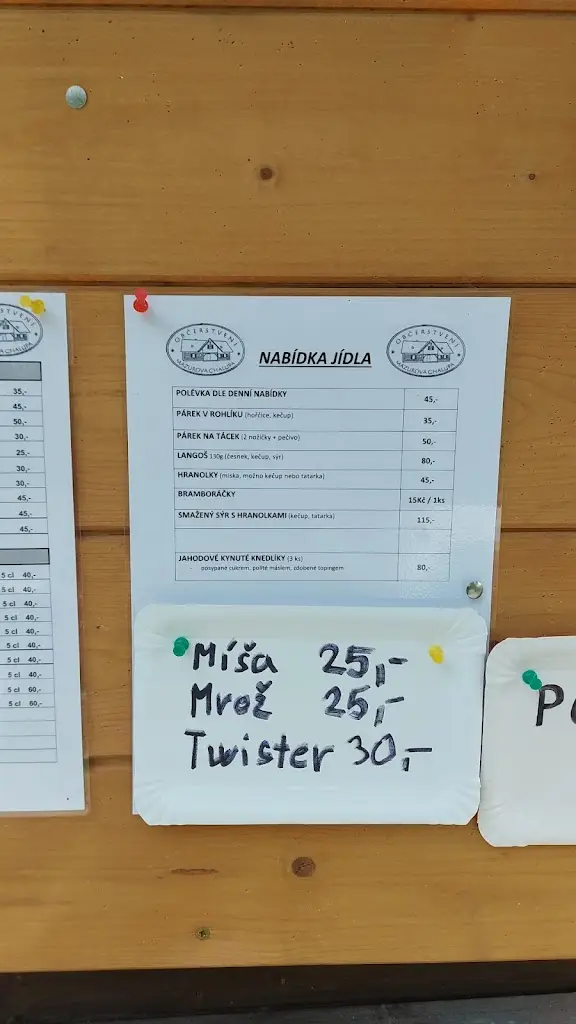 OBČERSTVENÍ
MAZUROVA CHALUPA
35,-
45,-
50,-
30,-
25,-
30,-
30,-
45,-
45,-
45,-
5 cl 40,-
5 cl 40,-
5 cl 40,-
5 cl 40,-
5 cl 40,-
5 cl 40,-
5 cl 40,-
5 cl 40,-
5 cl 60,-
5 cl 60,-
OBČERSTVENÍ
MAZUROVA CHALUPA
NABÍDKA JÍDLA
OBČERSTVENÍ
MAZUROVA CHALUPA
POLÉVKA DLE DENNÍ NABÍDKY 45,-
PÁREK V ROHLÍKU (hořčice, kečup) 35,-
PÁREK NA TÁCEK (2 nožičky + pečivo) 50,-
LANGOŠ 130g (česnek, kečup, sýr) 80,-
HRANOLKY (miska, možno kečup nebo tatarka) 45,-
BRAMBORÁČKY 15Kč / 1ks
SMAŽENÝ SÝR S HRANOLKAMI (kečup, tatarka) 115,-
JAHODOVÉ KYNUTÉ KNEDLÍKY (3 ks) 80,-
- posypané cukrem, polité máslem, zdobené topingem
Míša 25,-
Mrož 25,-
Twister 30,-